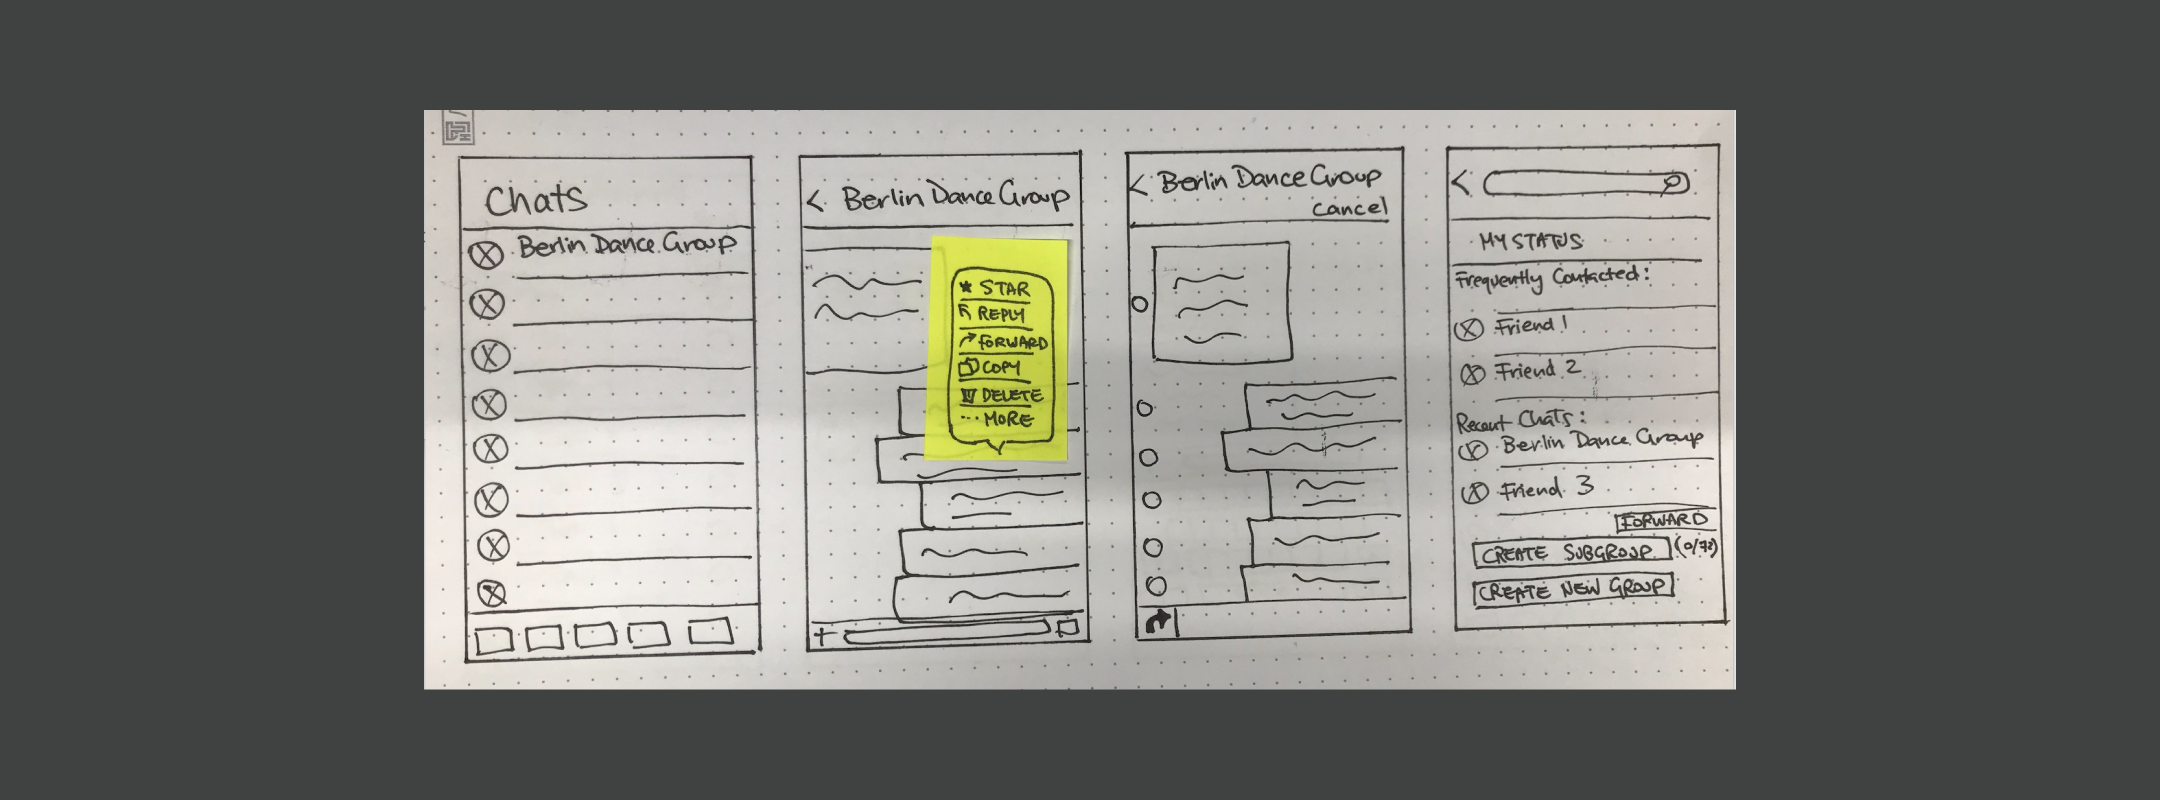 Chats
Berlin Dance Group
< Berlin Dance Group
★ STAR
REPLY
FORWARD
COPY
DELETE
... MORE
< Berlin Dance Group
cancel
<
MY STATUS
Frequently Contacted:
Friend 1
Friend 2
Recent Chats:
Berlin Dance Group
Friend 3
FORWARD
CREATE SUBGROUP (0/72)
CREATE NEW GROUP